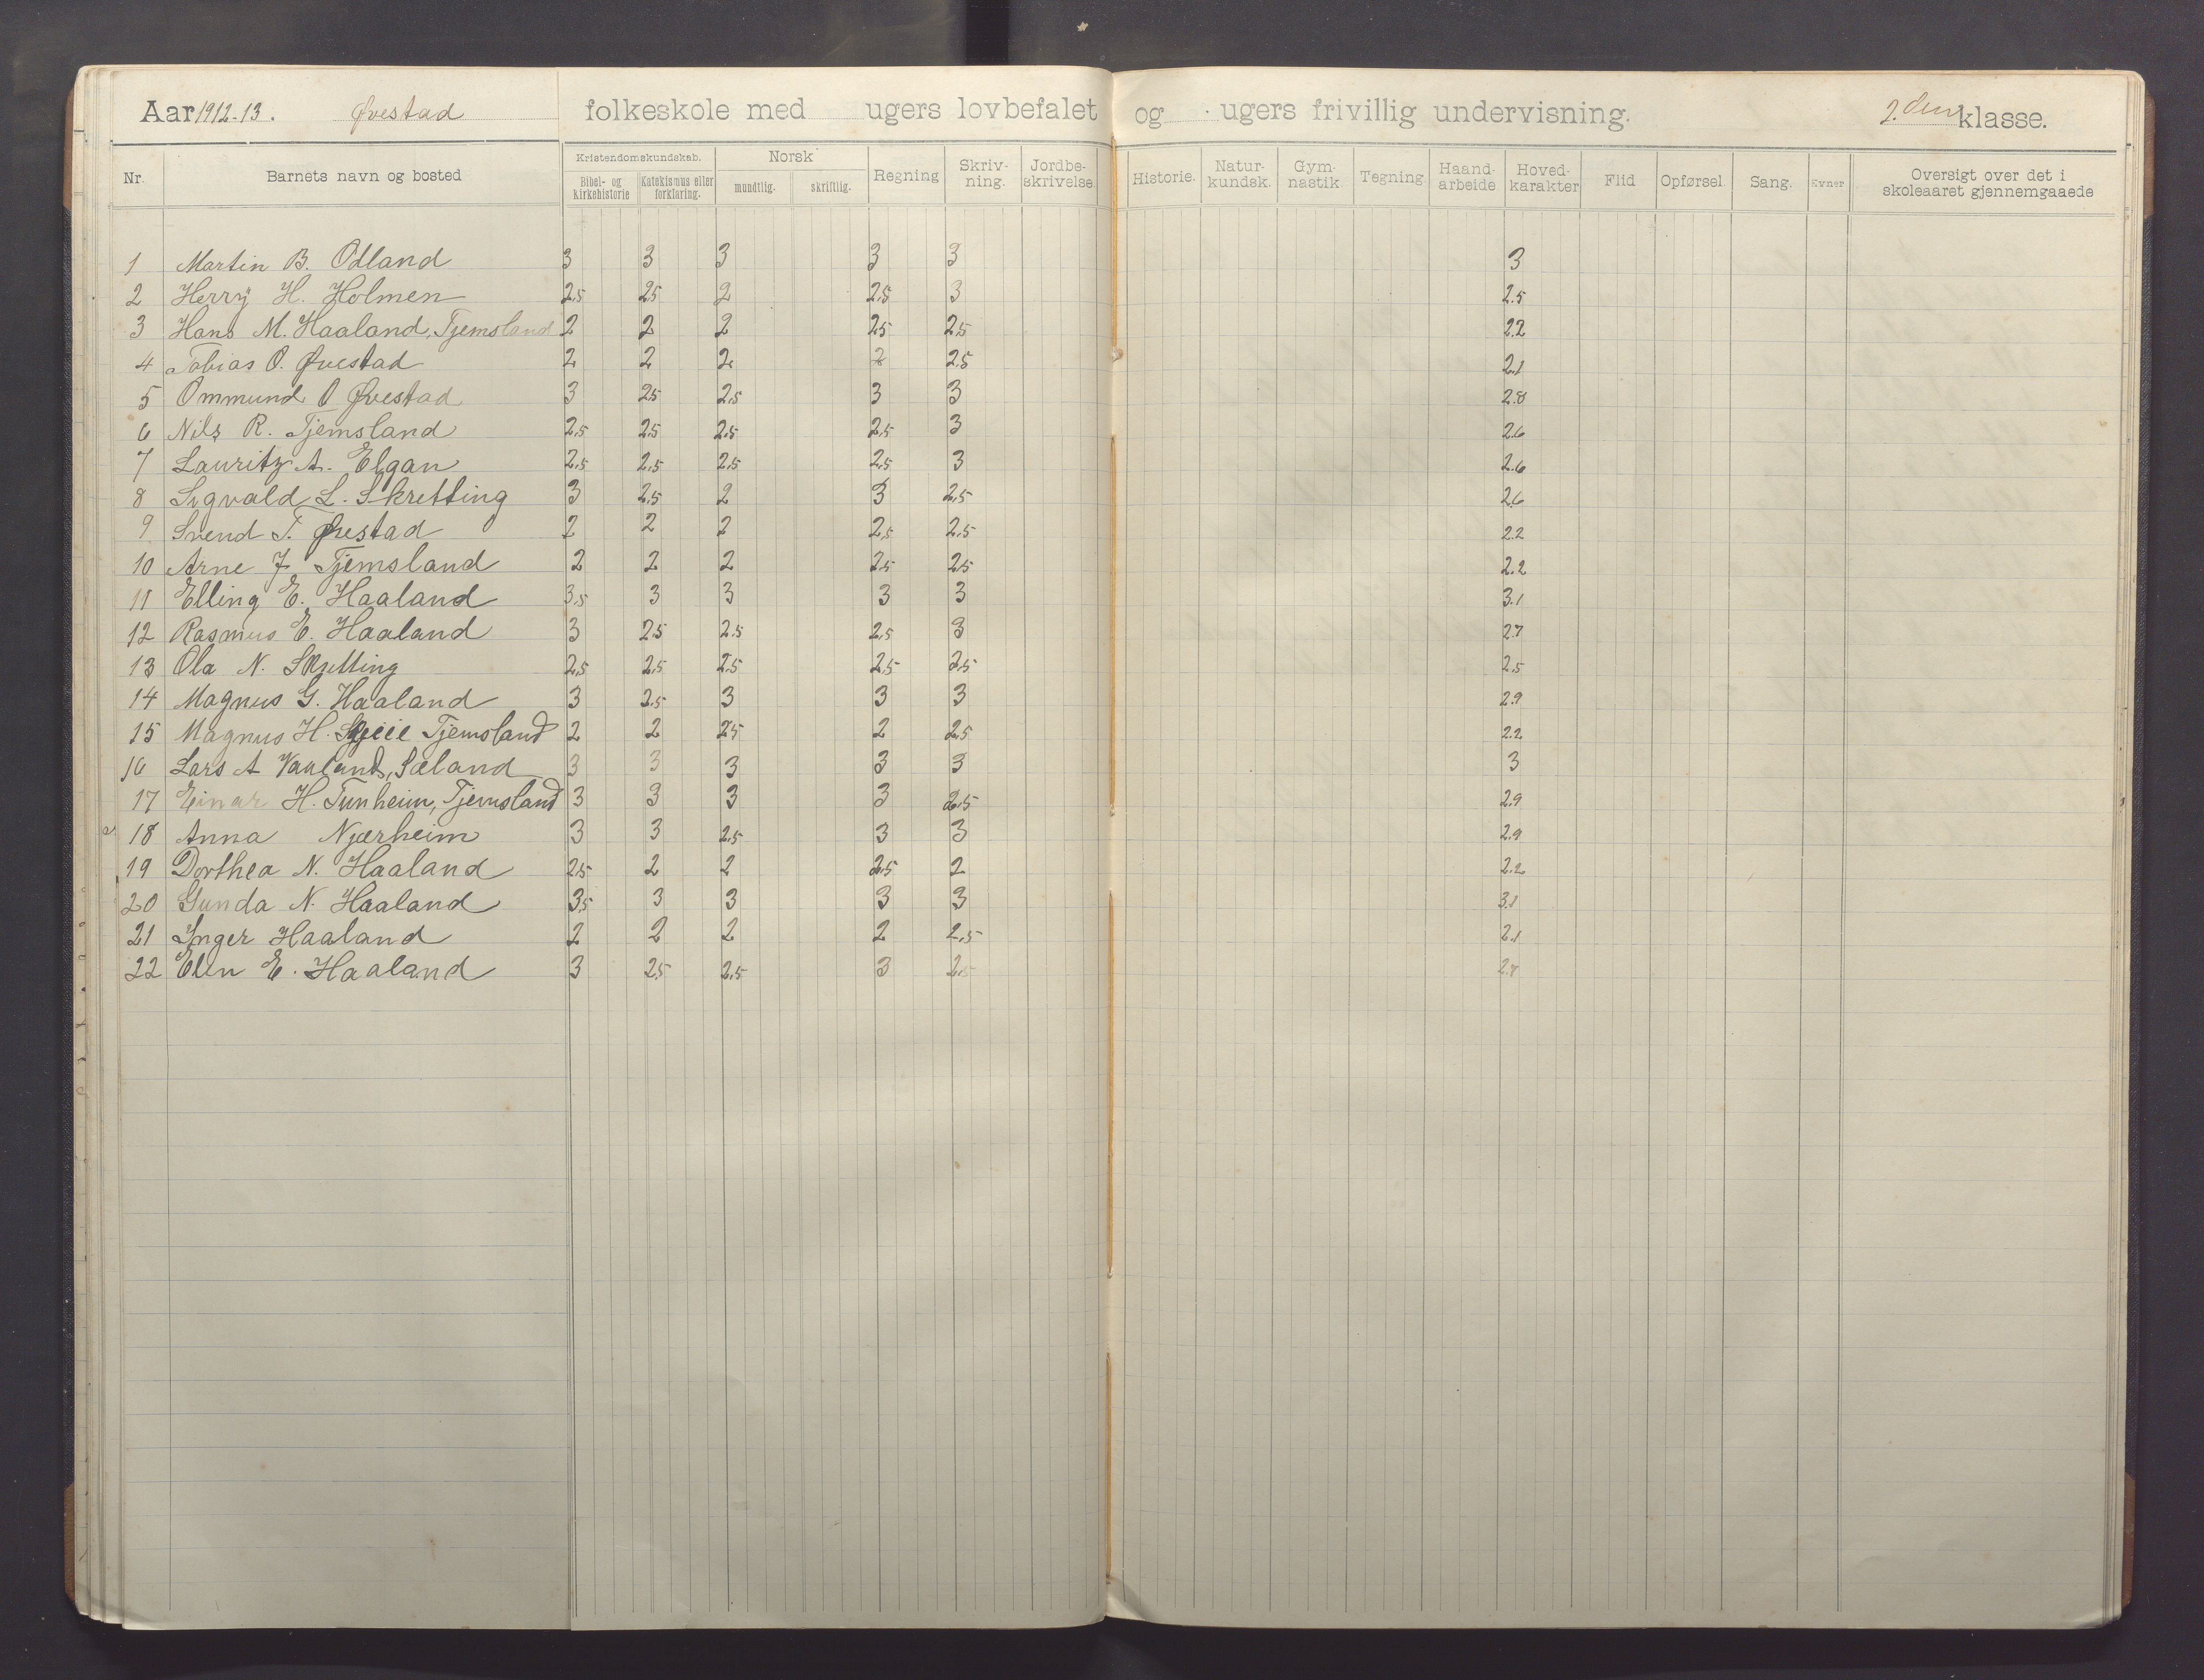 Aar 1912-13. Øvestad folkeskole med ugers lovbefalet og ugers frivillig undervisning. 2. den klasse.
Nr. Barnets navn og bosted Kristendomskundskab. Bibel- og kirkehistorie Katekismus eller forklaring. Norsk mundtlig. skriftlig. Regning Skriv-ning. Jordbe-skrivelse. Historie. Natur-kundsk. Gym-nastik. Tegning Haand-arbeide Hoved-karakter Flid Opførsel. Sang. Evner Oversigt over det i skoleaaret gjennemgaaede
1 Martin B. Odland 3 3 3 3 3 3
2 Herry H. Holmen 2.5 2.5 2 2.5 3 2.5
3 Hans M. Haaland, Tjemsland 2 2 2 2.5 2.5 2.2
4 Tobias O. Øvestad 2 2 2 2 2.5 2.1
5 Ommund O Øvestad 3 2.5 2.5 3 3 2.8
6 Nils R. Tjemsland 2.5 2.5 2.5 2.5 3 2.6
7 Lauritz A. Elgan 2.5 2.5 2.5 2.5 3 2.6
8 Sigvald L. Skretting 3 2.5 2 3 2.5 2.6
9 Svend T. Øvestad 2 2 2 2.5 2.5 2.2
10 Arne J Tjemsland 2 2 2 2.5 2.5 2.2
11 Elling E. Haaland 3.5 3 3 3 3 3.1
12 Rasmus E. Haaland 3 2.5 2.5 2.5 3 2.7
13 Ola N. Skretting 2.5 2.5 2.5 2.5 2.5 2.5
14 Magnus G. Haaland 3 2.5 3 3 3 2.9
15 Magnus H. Tjemsland 2 2 2.5 2 2.5 2.2
16 Lars A Vaaland, Sæland 3 3 3 3 3 3
17 Einar H. Tunheim, Tjemsland 3 3 3 3 2.5 2.9
18 Anna Njærheim 3 3 2.5 3 3 2.9
19 Dorthea N. Haaland 2.5 2 2 2.5 2 2.2
20 Gunda N. Haaland 3.5 3 3 3 3 3.1
21 Inger Haaland 2 2 2 2 2.5 2.1
22 Elen E. Haaland 3 2.5 2.5 3 2.5